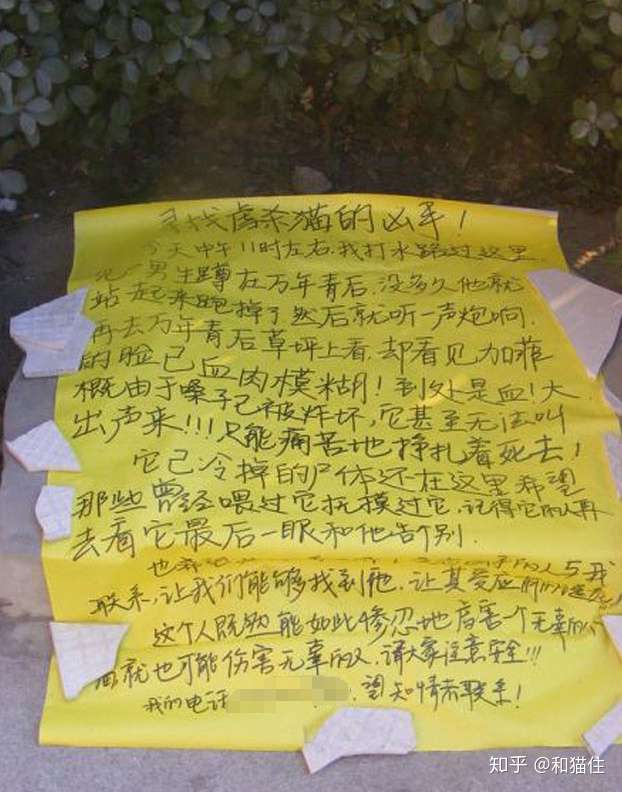 寻找虐杀猫的凶手！
今天中午11时左右,我打水路过这里
见一男生蹲在万年青后,没多久他就
站起来跑掉了然后就听一声炮响.
再去万年青后草坪上看,却看见加菲
的脸已血肉模糊！到处是血！大
概由于嗓子已被炸坏,它甚至无法叫
出声来！！！只能痛苦地挣扎着死去！
它已冷掉的尸体还在这里希望
那些曾经喂过它抚摸过它,记得它的人再
去看它最后一眼和他告个别.
也 的人与我
联系,让我们能够找到他,让其受应
这个人既然能如此惨忍地 害一个无辜的
就也可能伤害无辜的人,请大家注意安全!!!
我的电话 ,望知情者联系!
知乎 @和猫住